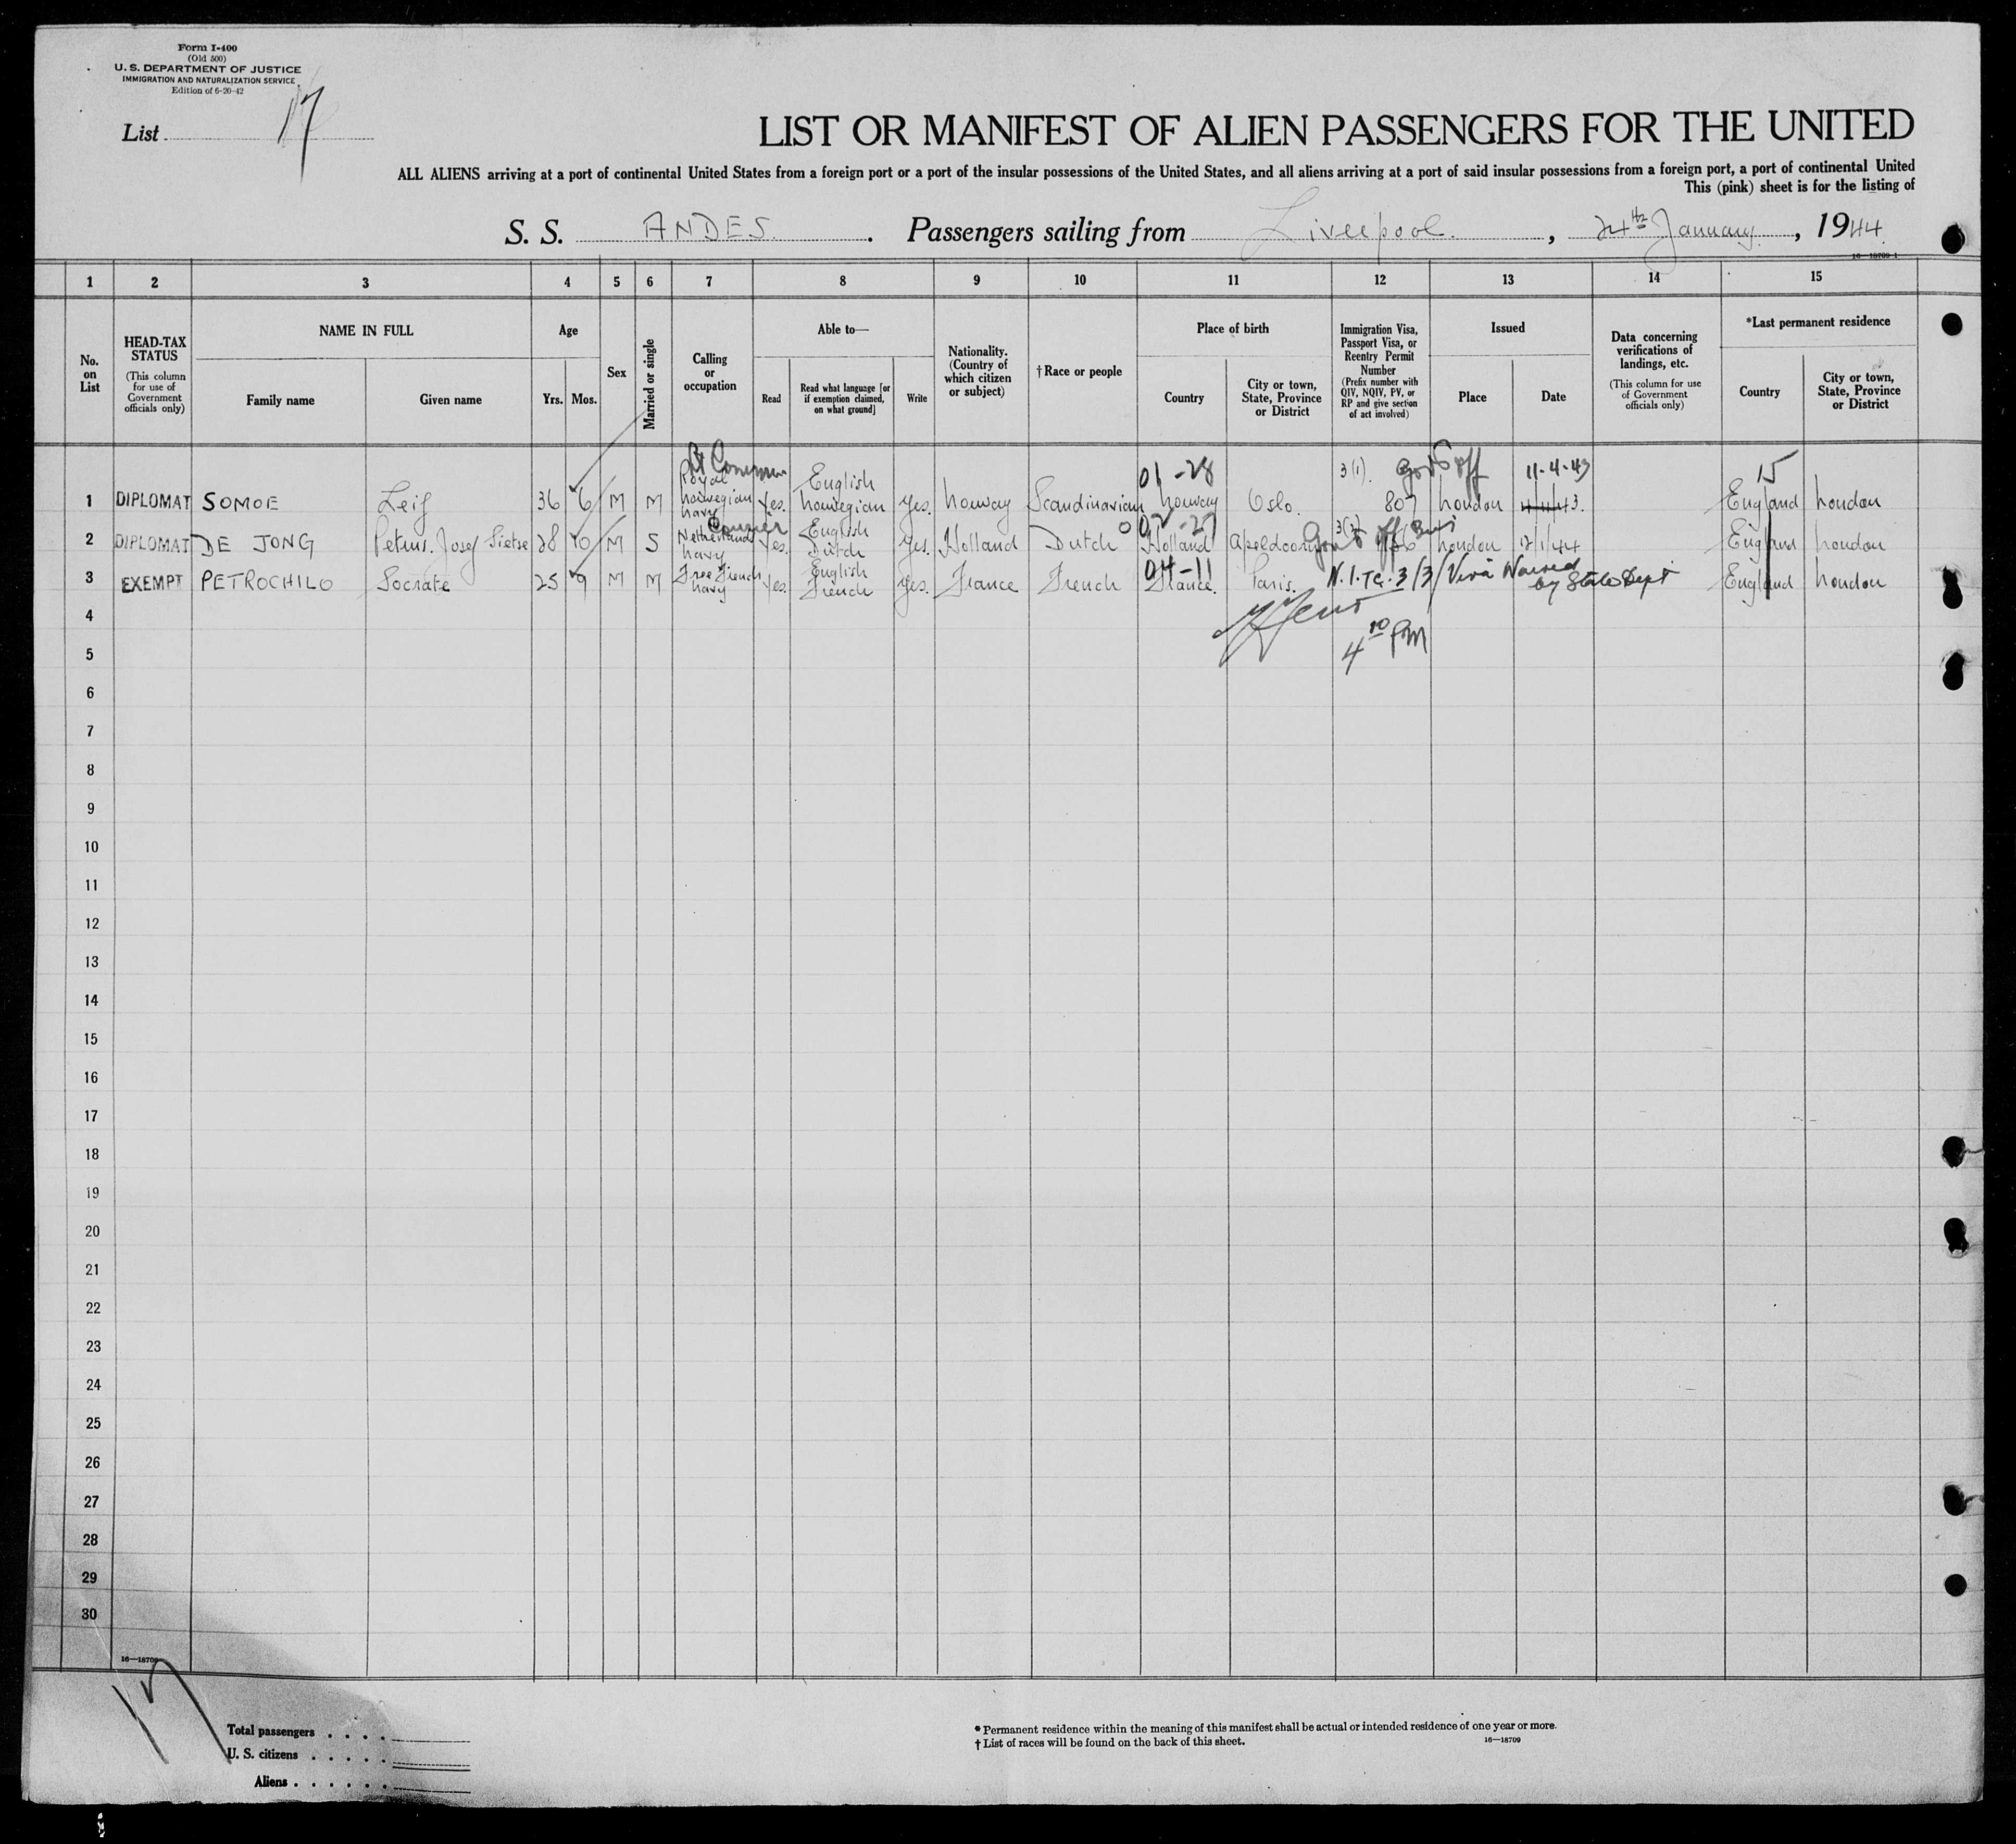 Form I-400
(Old 500)
U. S. DEPARTMENT OF JUSTICE
IMMIGRATION AND NATURALIZATION SERVICE
Edition of 6-20-42
List 17
LIST OR MANIFEST OF ALIEN PASSENGERS FOR THE UNITED
ALL ALIENS arriving at a port of continental United States from a foreign port or a port of the insular possessions of the United States, and all aliens arriving at a port of said insular possessions from a foreign port, a port of continental United
This (pink) sheet is for the listing of
S. S. ANDES. Passengers sailing from Liverpool., 24th January, 1944.
16—18709-1
1 2 3 4 5 6 7 8 9 10 11 12 13 14 15
No. on List
HEAD-TAX STATUS
(This column for use of Government officials only)
NAME IN FULL
Family name Given name
Age
Yrs. Mos.
Sex
Married or single
Calling or occupation
Able to—
Read
Read what language [or if exemption claimed, on what ground]
Write
Nationality. (Country of which citizen or subject)
†Race or people
Place of birth
Country
City or town, State, Province or District
Immigration Visa, Passport Visa, or Reentry Permit Number
(Prefix number with QIV, NQIV, PV, or RP and give section of act involved)
Issued
Place Date
Data concerning verifications of landings, etc.
(This column for use of Government officials only)
*Last permanent residence
Country
City or town, State, Province or District
Royal 01-28 3(1). Gov't off 11-4-43 15
1 DIPLOMAT SOMOE Leif 36 6 M M Norwegian Navy Yes. English Norwegian Yes. Norway Scandinavian Norway Oslo. 807 London 4/11/43. England London
Courier 02-27 3(2)
2 DIPLOMAT DE JONG Petrus. Josef Sietse 28 M S Netherlands Navy Yes. English Dutch Yes. Holland Dutch Holland Apeldoorn Gov't off London 12/1/44 England London
04-11
3 EXEMPT PETROCHILO Socrate 25 9 M M Free French Navy Yes. English French Yes. France French France. Paris. 3/3 Visa Waived by State Dept England London
4
4 10 PM
5
6
7
8
9
10
11
12
13
14
15
16
17
18
19
20
21
22
23
24
25
26
27
28
29
30
16—18709
17
Total passengers . . . .
U. S. citizens . . . . .
Aliens . . . . . .
* Permanent residence within the meaning of this manifest shall be actual or intended residence of one year or more.
† List of races will be found on the back of this sheet.
16—18709